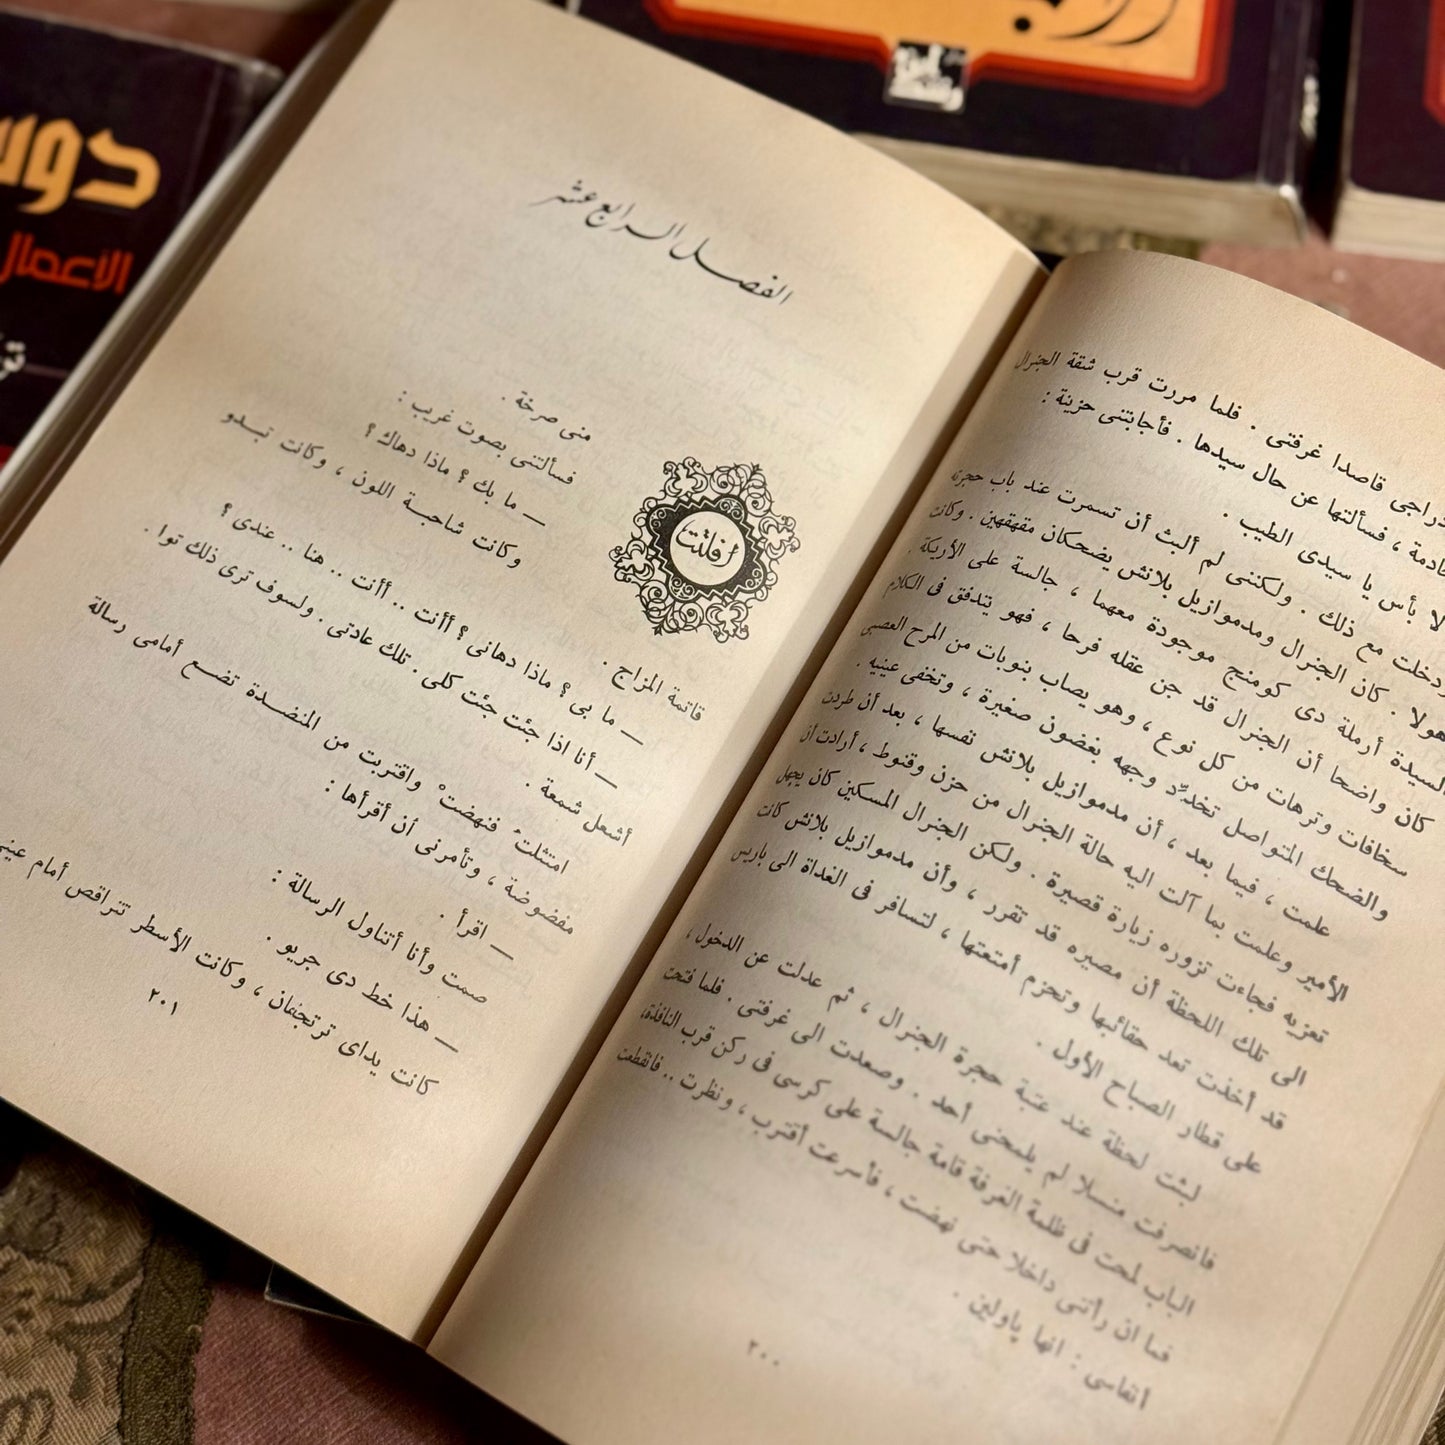 دوس
الأعمال
قاصدا غرفتى . فلما مررت قرب شقة الجنرال
فسألتها عن حال سيدها . فأجابتنى حزينة :
لا بأس يا سيدى الطيب .
ودخلت مع ذلك . ولكننى لم ألبث أن تسمرت عند باب حجرته
كان الجنرال ومدموازيل بلانش يضحكان مقهقهين . وكانت
السيدة أرملة دى كومنج موجودة معهما ، جالسة على الأريكة .
كان واضحا أن الجنرال قد جن عقله فرحا ، فهو يتدفق فى الكلام
سخافات وترهات من كل نوع ، وهو يصاب بنوبات من المرح العصبى
والضحك المتواصل تخدِّد وجهه بغضون صغيرة ، وتخفى عينيه .
علمت ، فيما بعد ، أن مدموازيل بلانش نفسها ، بعد أن طردت
الأمير وعلمت بما آلت اليه حالة الجنرال من حزن وقنوط ، أرادت أن
تعزيه فجاءت تزوره زيارة قصيرة . ولكن الجنرال المسكين كان يجهل
الى تلك اللحظة أن مصيره قد تقرر ، وأن مدموازيل بلانش كانت
قد أخذت تعد حقائبها وتحزم أمتعتها ، لتسافر فى الغداة الى باريس
على قطار الصباح الأول .
لبثت لحظة عند عتبة حجرة الجنرال ، ثم عدلت عن الدخول ،
فانصرفت منسلا لم يلمحنى أحد . وصعدت الى غرفتى . فلما فتحت
الباب لمحت فى ظلمة الغرفة قامة جالسة على كرسى فى ركن قرب النافذة؛
فما ان رأتنى داخلا حتى نهضت ، فأسرعت أقترب ، ونظرت .. فانقطعت
أنفاسى : انها پاولين .
٢٠٠
الفصل الرابع عشر
أفلتت
منى صرخة .
فسألتنى بصوت غريب :
— ما بك ؟ ماذا دهاك ؟
وكانت شاحبة اللون ، وكانت تبدو
قاتمة المزاج .
— ما بى ؟ ماذا دهانى ؟ أأنت .. أأنت .. هنا .. عندى ؟
— أنا اذا جئت جئت كلى . تلك عادتى . ولسوف ترى ذلك توا .
أشعل شمعة .
امتثلتُ فنهضتْ واقتربت من المنضدة تضع أمامى رسالة
مفضوضة ، وتأمرنى أن أقرأها :
— اقرأ .
صمت وأنا أتناول الرسالة :
— هذا خط دى جريو .
كانت يداى ترتجفان ، وكانت الأسطر تتراقص أمام عينى
٢٠١